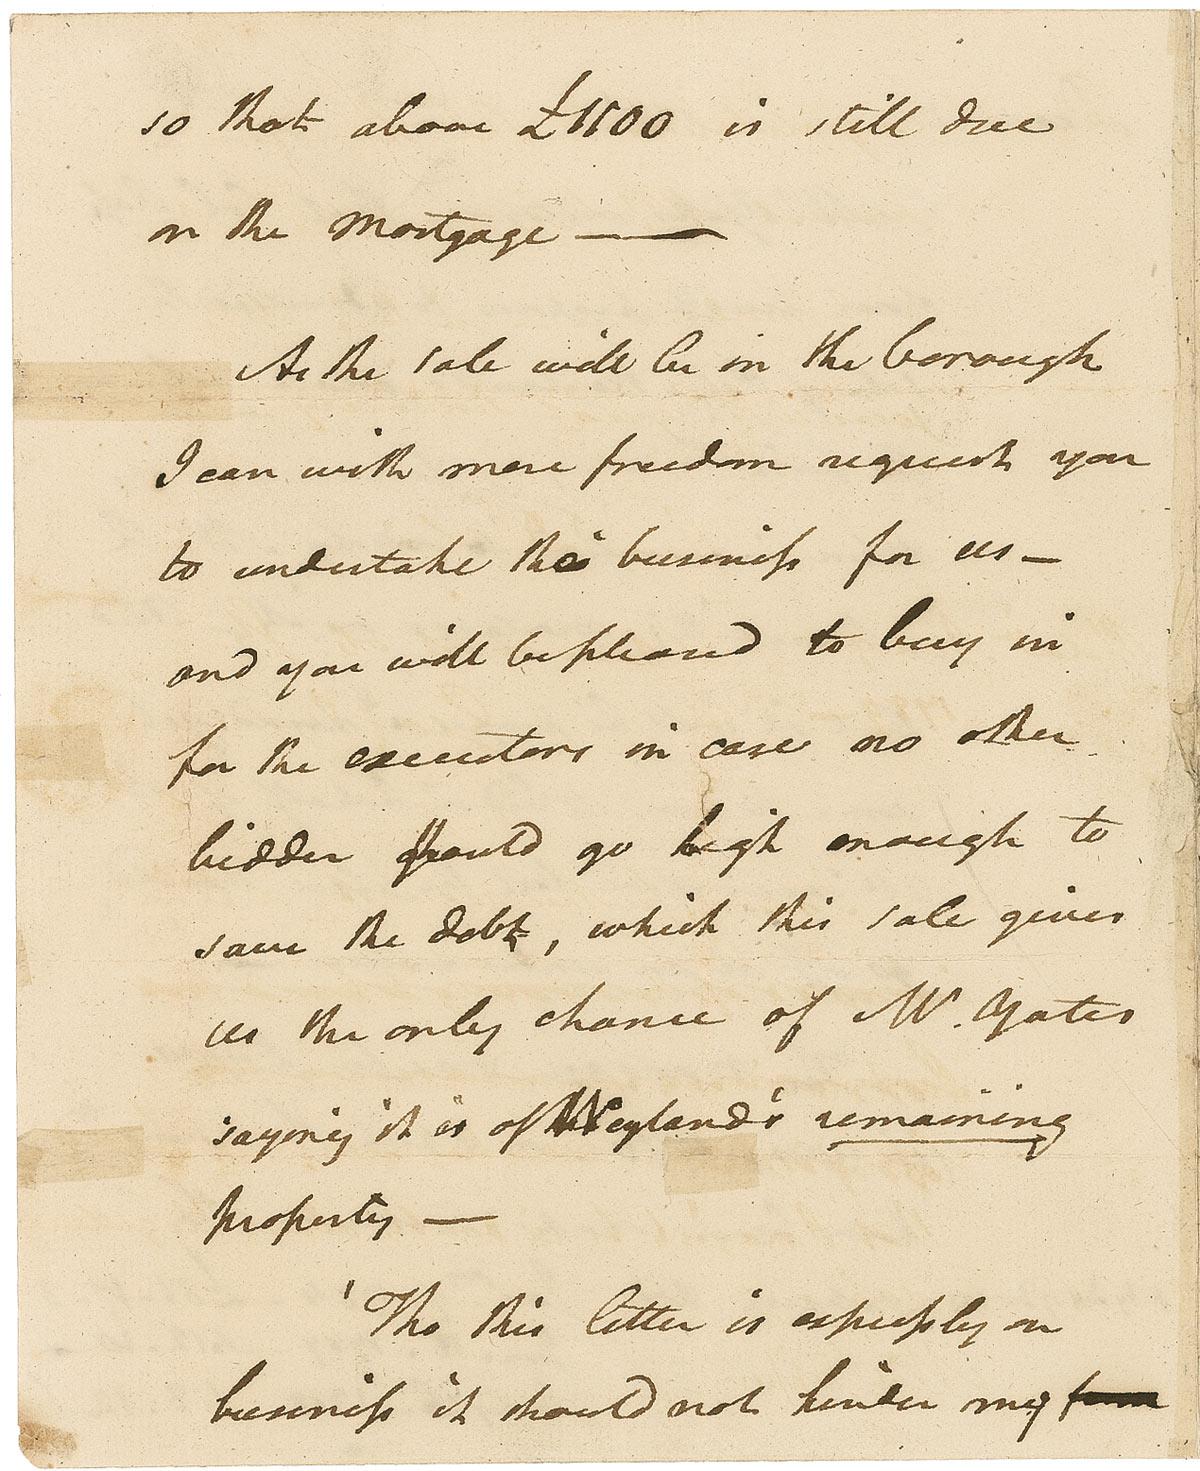 so that above £1500 is still due
on the Mortgage —
As the sale will be in the borough
I can with more freedom request you
to undertake this business for us —
and you will be pleased to buy in
for the executors in case no other
bidder should go high enough to
save the debt, which this sale gives
us the only chance of Mr. Yates
saying it is of Weyland's remaining
property —
Tho this letter is expressly on
business it should not hinder my